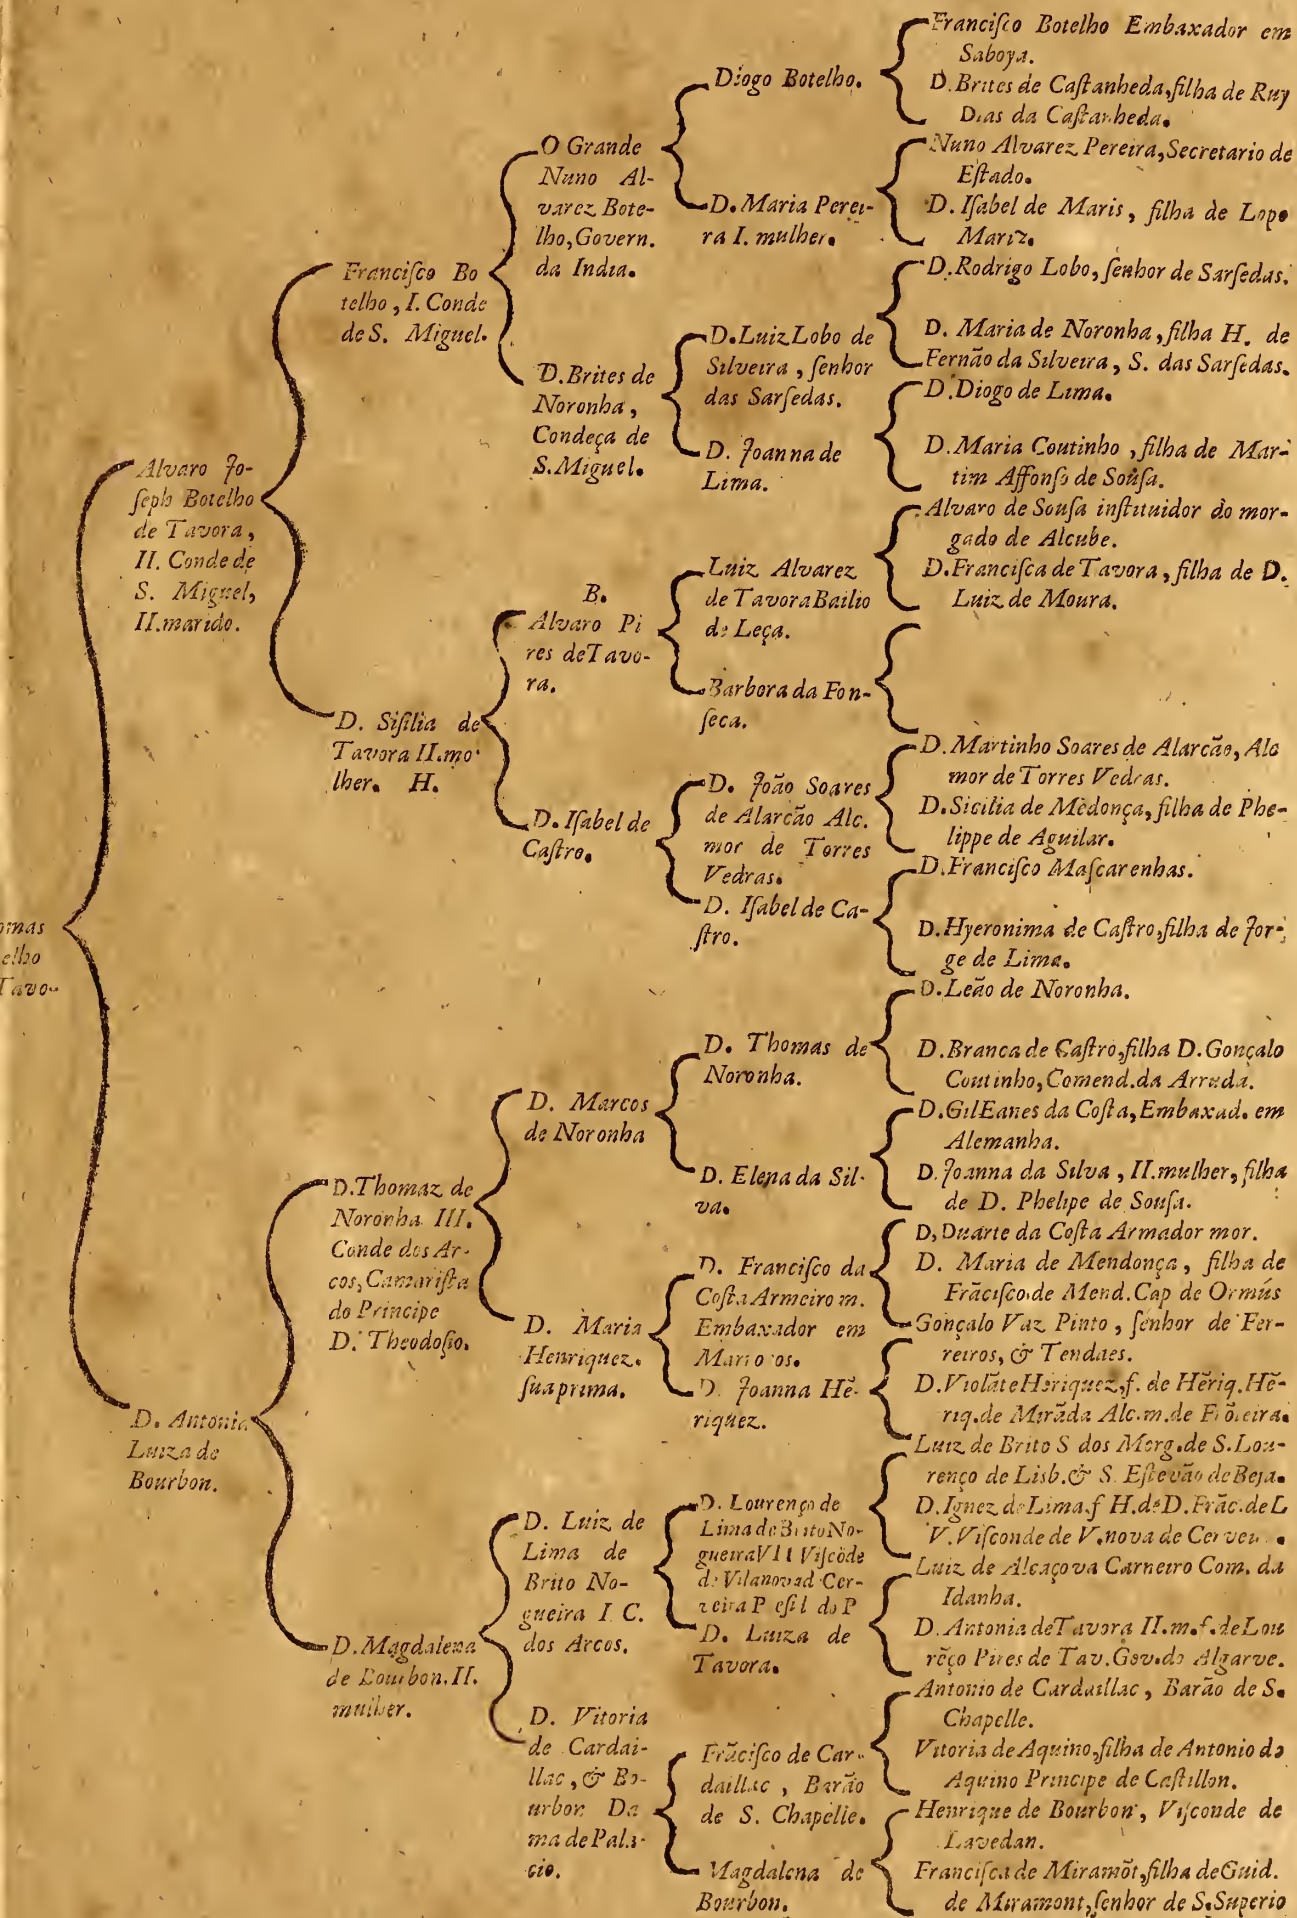 omas
elho
Tavo-
Alvaro Jo-
ſeph Botelho
de Tavora,
II. Conde de
S. Miguel,
II.marido.
D. Antonia
Luiza de
Bourbon.
Franciſco Bo
telho, I. Conde
de S. Miguel.
D. Siſilia de
Tavora II.mo
lher. H.
D.Thomaz de
Noronha III.
Conde dos Ar-
cos, Camariſta
do Principe
D. Theodoſio.
D.Magdalena
de Bourbon.II.
mulher.
O Grande
Nuno Al-
varez Bote-
lho,Govern.
da India.
D.Brites de
Noronha,
Condeça de
S.Miguel.
B.
Alvaro Pi
res deTavo-
ra.
D.Iſabel de
Caſtro.
D. Marcos
de Noronha
D. Maria
Henriquez.
ſua prima.
D. Luiz de
Lima de
Brito No-
gueira I C.
dos Arcos.
D. Vitoria
de Cardai-
llac, & Bo-
urbon Da
ma de Pala-
cio.
Diogo Botelho.
D.Maria Perei-
ra I. mulher.
D.Luiz Lobo de
Silveira, ſenhor
das Sarſedas.
D. Joanna de
Lima.
Luiz Alvarez
de Tavora Bailio
de Leça.
Barbora da Fon-
ſeca.
D. João Soares
de Alarcão Alc.
mor de Torres
Vedras.
D. Iſabel de Ca-
ſtro.
D. Thomas de
Noronha.
D. Elena da Sil-
va.
D. Franciſco da
Coſta Armeiro m.
Embaxador em
Marrocos.
D. Joanna Hẽ-
riquez.
D. Lourenço de
Lima de Brito No-
gueira VII Viſcõde
de Vilanova d Cer-
veira P do P
D. Luiza de
Tavora.
Frãciſco de Car-
daillac, Barão
de S. Chapelle.
Magdalena de
Bourbon.
Franciſco Botelho Embaxador em
Saboya.
D.Brites de Caſtanheda,filha de Ruy
Dias da Caſtanheda.
Nuno Alvarez Pereira,Secretario de
Eſtado.
D. Iſabel de Maris, filha de Lopo
Mariz.
D.Rodrigo Lobo, ſenhor de Sarſedas.
D. Maria de Noronha, filha H. de
Fernão da Silveira, S. das Sarſedas.
D.Diogo de Lima.
D.Maria Coutinho, filha de Mar-
tim Affonſo de Souſa.
Alvaro de Souſa inſtituidor do mor-
gado de Alcube.
D.Franciſca de Tavora, filha de D.
Luiz de Moura.
D.Martinho Soares de Alarcão, Alc
mor de Torres Vedras.
D.Sicilia de Mẽdonça,filha de Phe-
lippe de Aguilar.
D.Franciſco Maſcarenhas.
D.Hyeronima de Caſtro,filha de Jor-
ge de Lima.
D.Leão de Noronha.
D.Branca de Caſtro,filha D.Gonçalo
Coutinho, Comend.da Arruda.
D.Gil Eanes da Coſta,Embaxad. em
Alemanha.
D.Joanna da Silva, II.mulher,filha
de D. Phelipe de Souſa.
D,Duarte da Coſta Armador mor.
D. Maria de Mendonça, filha de
Frãciſco de Mend.Cap de Ormús
Gonçalo Vaz Pinto, ſenhor de Fer-
reiros, & Tendaes.
D.Violãte Hẽriquez,f. de Hẽriq.Hẽ-
riq.de Mirãda Alc.m.de
Luiz de Brito S dos Morg.de S.Lou-
renço de Lisb.& S. Eſtevão de Beja.
D.Ignez de Lima.f H.de D.Frãc.de L
V.Viſconde de V.nova de Cervei
Luiz de Alcaçova Carneiro Com. da
Idanha.
D.Antonia deTavora II.m.f.de Lou
rẽço Pires de Tav.Gov.do Algarve.
Antonio de Cardaillac, Barão de S.
Chapelle.
Vitoria de Aquino,filha de Antonio de
Aquino Principe de Caſtillon.
Henrique de Bourbon, Viſconde de
Lavedan.
Franciſca de Miramõt,filha de Guid.
de Miramont,ſenhor de S.Superio